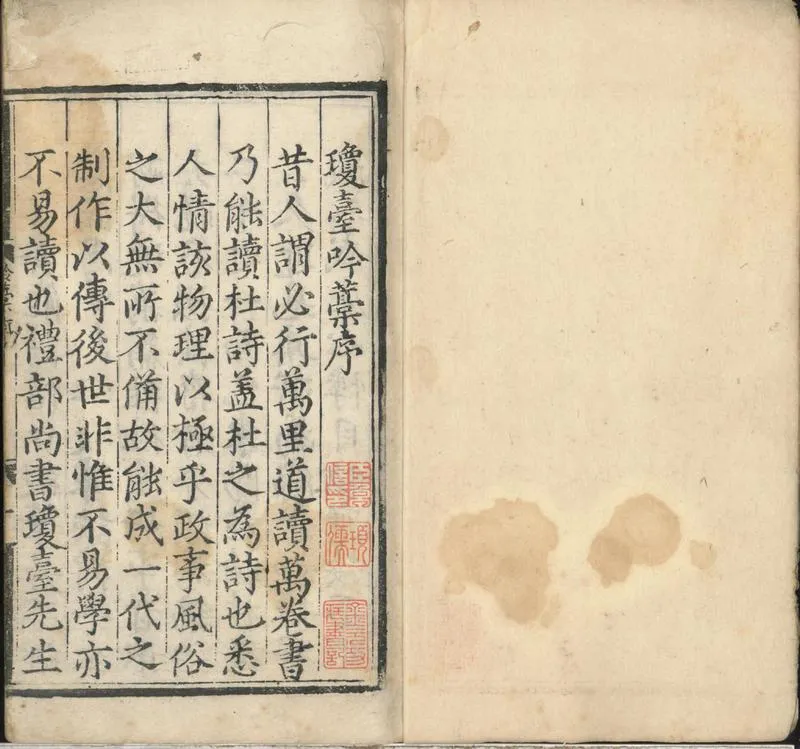 瓊臺吟藁序
昔人謂必行萬里道讀萬卷書
乃能讀杜詩葢杜之為詩也悉
人情該物理以極乎政事風俗
之大無所不備故能成一代之
制作以傳後世非惟不易學亦
不易讀也禮部尚書瓊臺先生